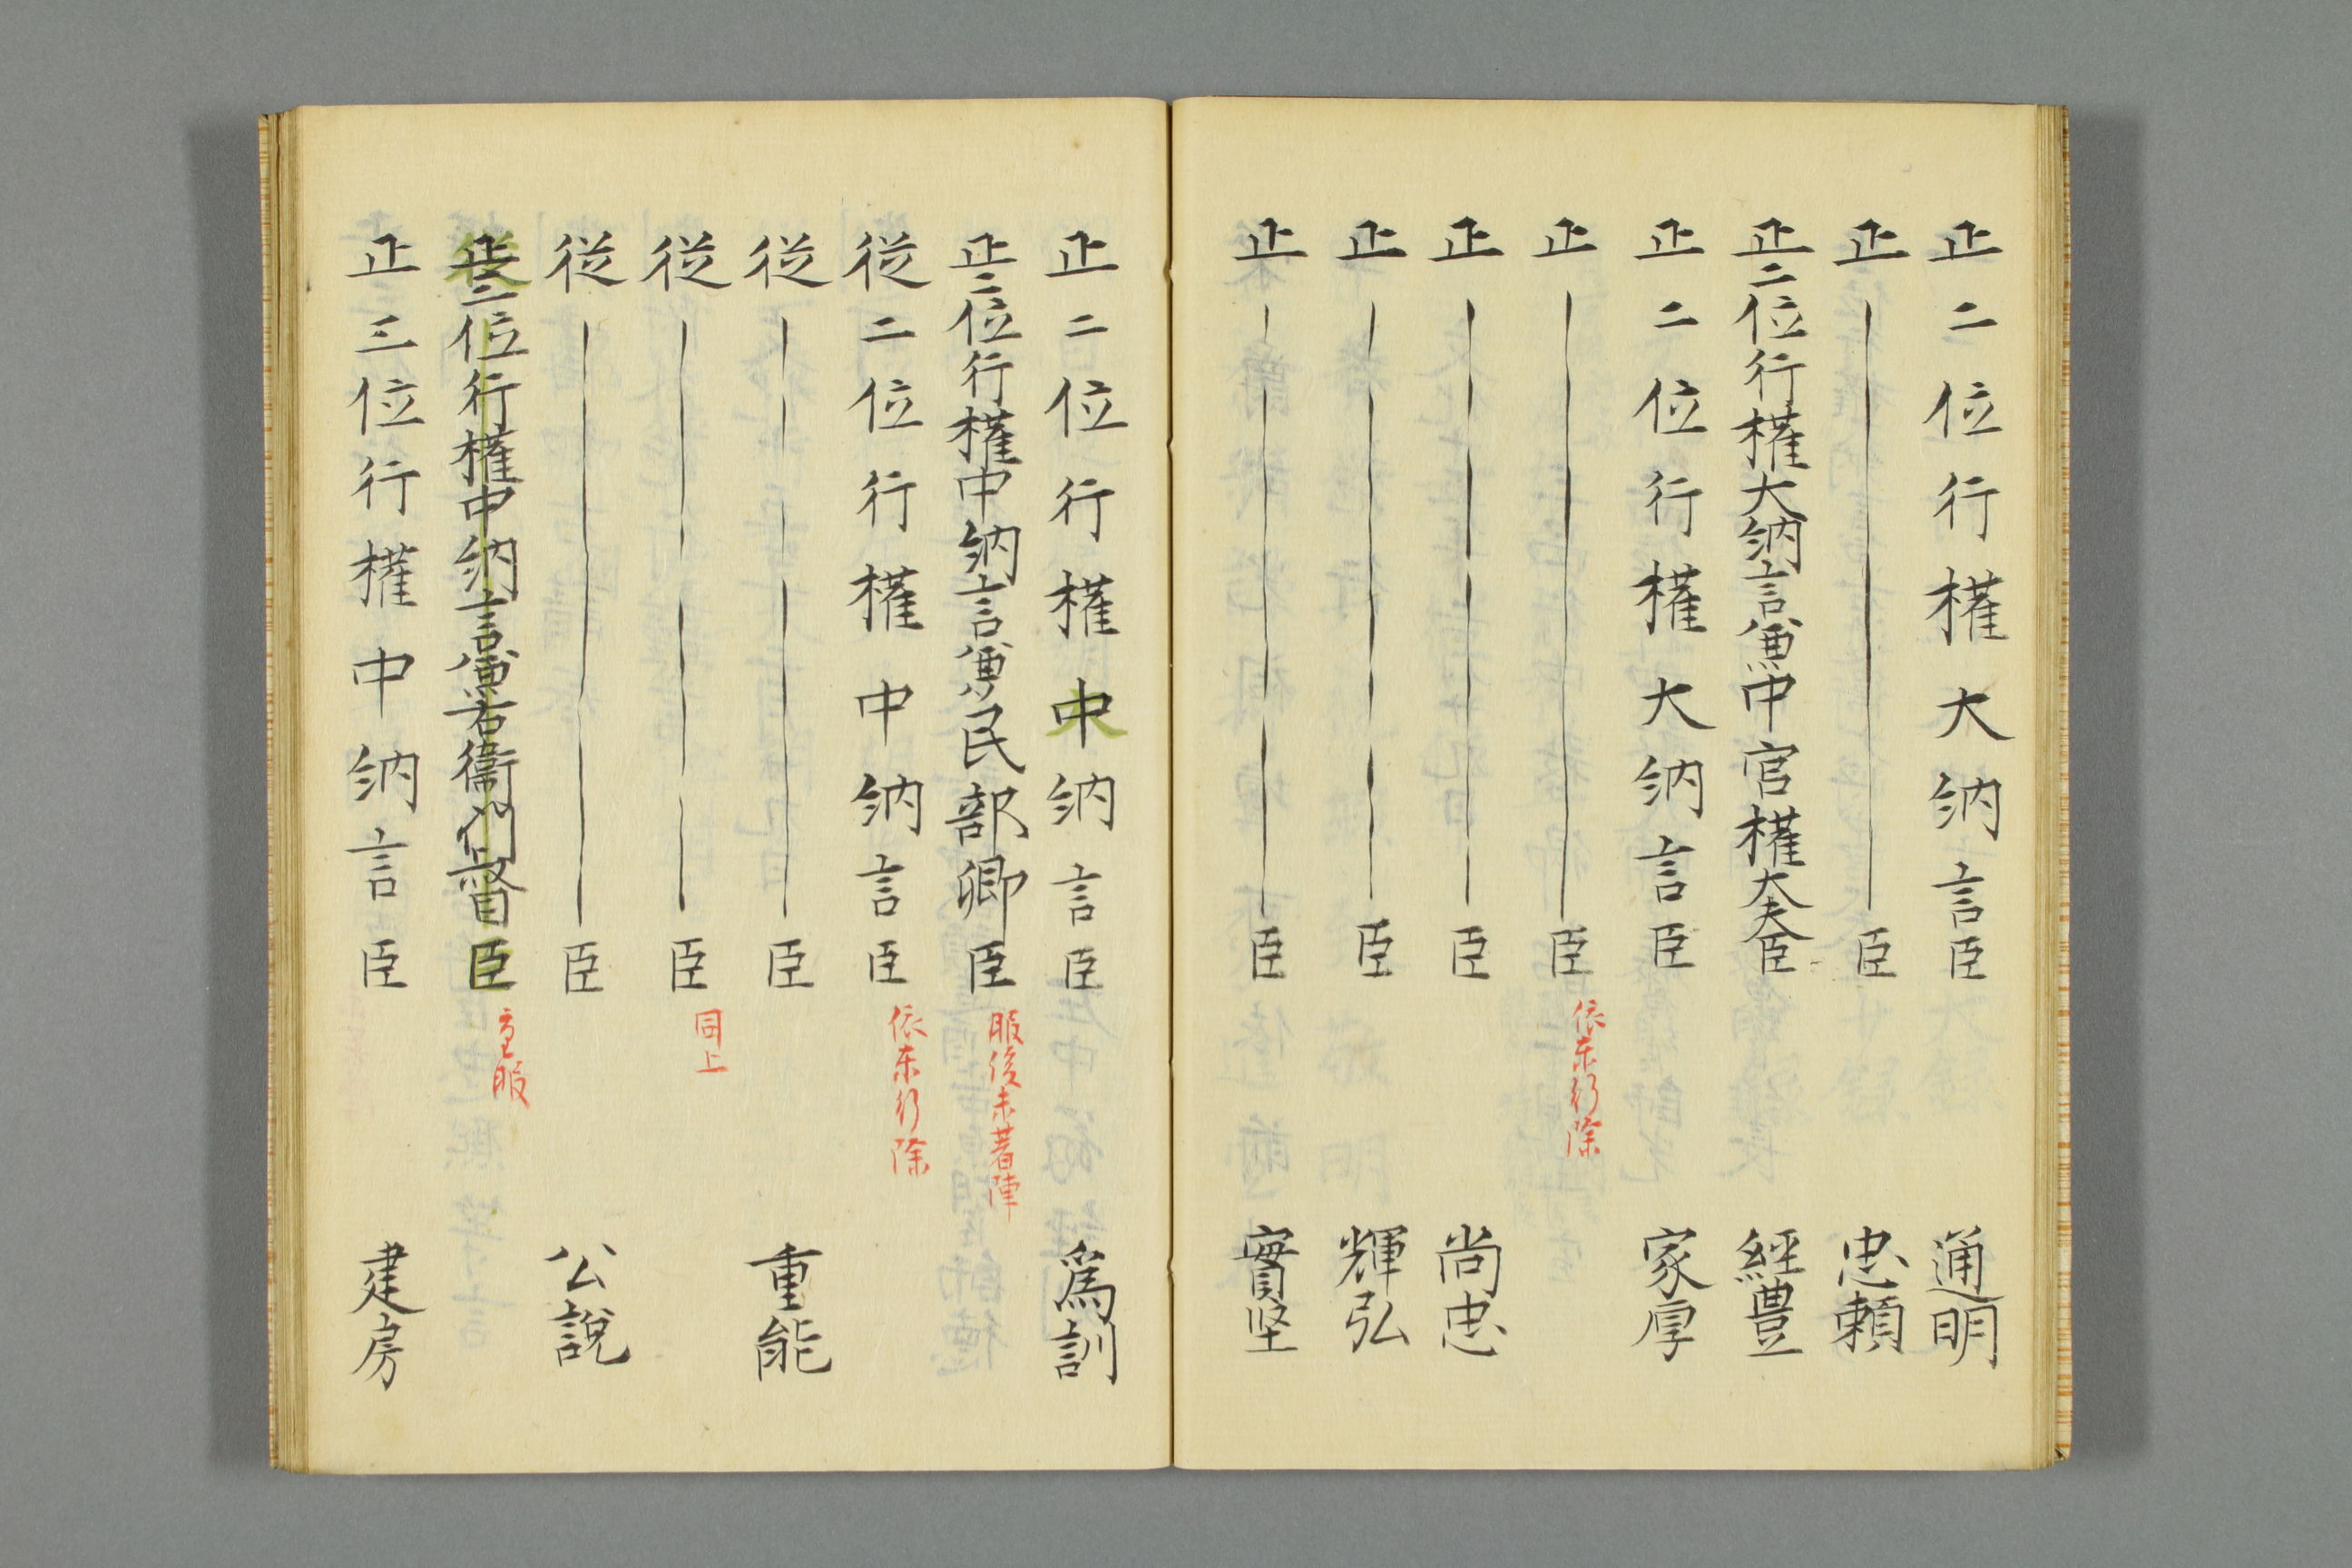 正二位行權大納言臣通明
正――臣忠頼
正二位行權大納言兼中宮權大夫臣經豊
正二位行權大納言臣家厚
正――臣依東行除
正――臣尚忠
正――臣輝弘
正――臣實堅
正二位行權中納言臣爲訓
正二位行權中納言兼民部卿臣服後未着陣
従二位行權中納言臣依東行除
従――臣重能
従――臣同上
従――臣公説
二位行權中納言兼右衛門督臣重服
正三位行權中納言臣建房